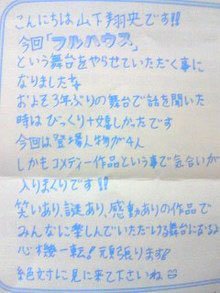 こんにちは山下翔央です!!
今回「フルハウス」
という舞台をやらせていただく事に
なりました
およそ3年ぶりの舞台で話を聞いた
時はびっくり+嬉しかったです
今回は登場人物が4人
しかもコメディー作品という事で気合いが
入りまくりです!!
笑いあり、謎あり、感動ありの作品で
みんなに楽しんでいただける舞台になるよう
心機一転!頑張ります!
絶対に見に来て下さいね